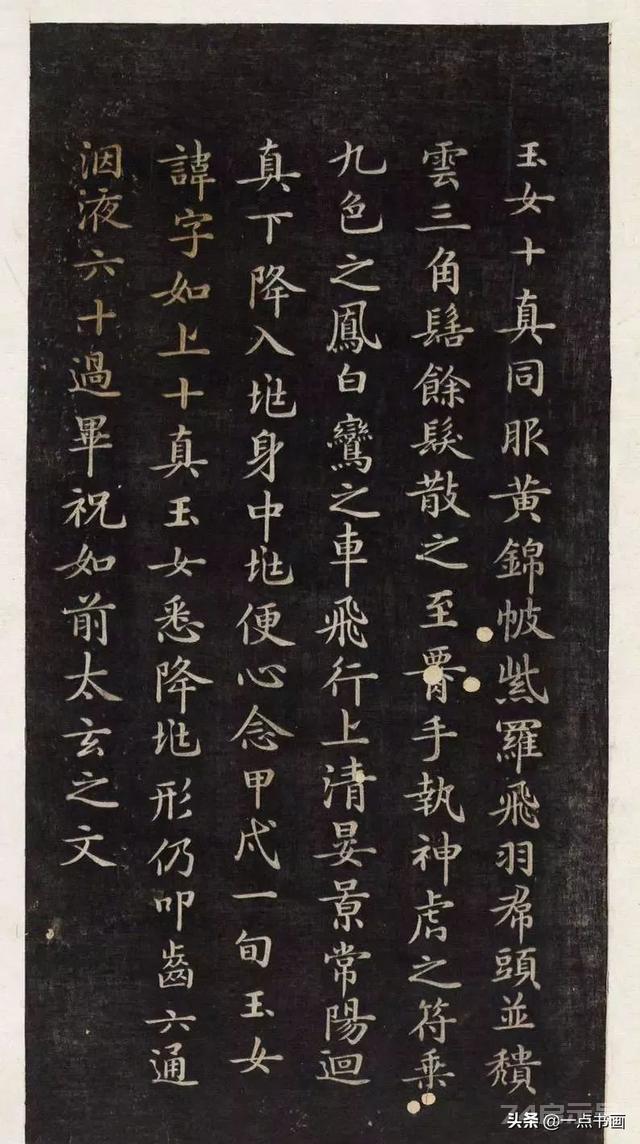 玉女十真同服黄錦帔紫羅飛羽帬頭並穨
雲三角髻餘髮散之至要手執神虎之符乗
九色之鳳白鸞之車飛行上清晏景常陽迴
真下降入垗身中垗便心念甲戌一旬玉女
諱字如上十真玉女悉降垗形仍叩齒六通
洇液六十過畢祝如前太玄之文
头条 @一点书画